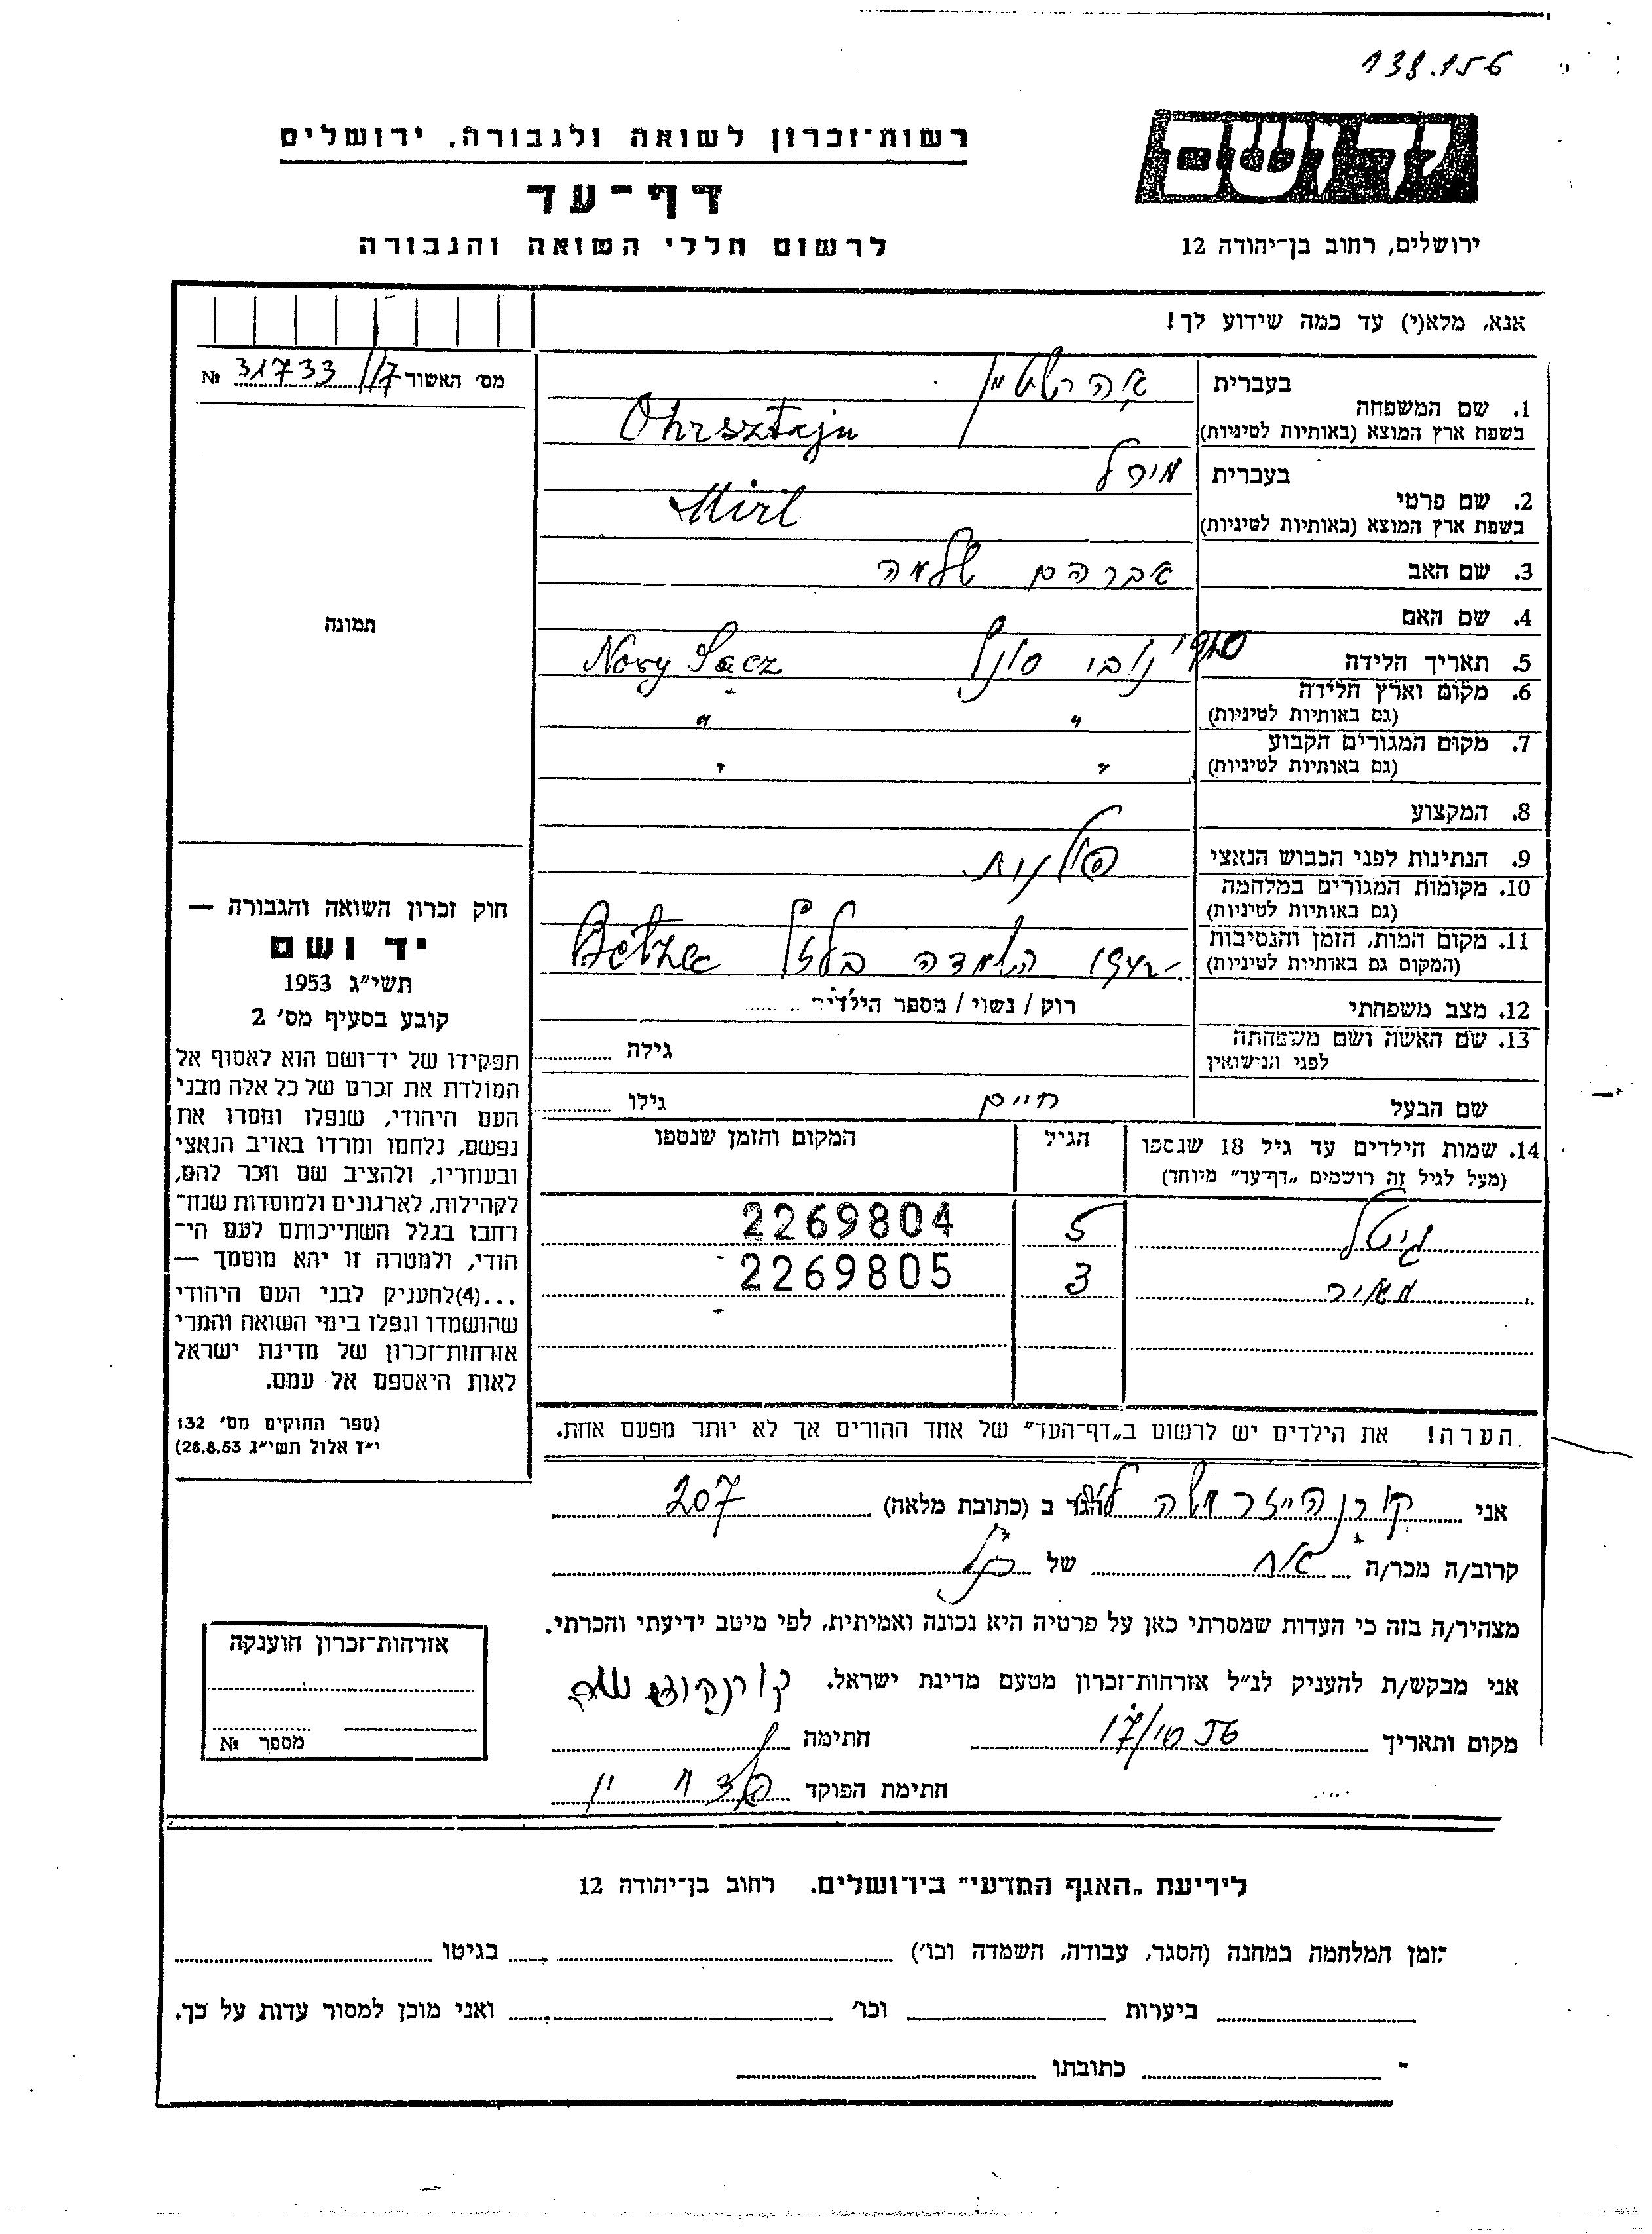 138.156
רשות־זכרון לשואה ולגבורה, ירושלים
יד ושם
דף־עד
לרשום חללי השואה והגבורה
ירושלים, רחוב בן־יהודה 12
אנא, מלא(י) עד כמה שידוע לך!
מס׳ האשור 7// 31733 №
בעברית
1. שם המשפחה
בשפת ארץ המוצא (באותיות לטיניות) Ohrsztajn
בעברית מירל
2. שם פרטי
בשפת ארץ המוצא (באותיות לטיניות) Miril
3. שם האב אברהם שלמה
4. שם האם
5. תאריך הלידה 1910
נובי סונץ Novy Sącz
6. מקום וארץ הלידה
(גם באותיות לטיניות) " "
7. מקום המגורים הקבוע
(גם באותיות לטיניות) " "
8. המקצוע
9. הנתינות לפני הכבוש הנאצי פולנית
10. מקומות המגורים במלחמה
(גם באותיות לטיניות)
11. מקום המות, הזמן והנסיבות
(המקום גם באותיות לטיניות) 1942 הושמדה בלזץ Bełzec
12. מצב משפחתי רוק / נשוי / מספר הילדים
13. שם האשה ושם משפחתה
לפני הנישואין גילה
שם הבעל חיים גילו
14. שמות הילדים עד גיל 18 שנספו הגיל המקום והזמן שנספו
(מעל לגיל זה רושמים „דף־עד״ מיוחד)
גיטל 5 2269804
מאיר 3 2269805
הערה! את הילדים יש לרשום ב„דף־העד״ של אחד ההורים אך לא יותר מפעם אחת.
תמונה
חוק זכרון השואה והגבורה —
יד ושם
תשי״ג 1953
קובע בסעיף מס׳ 2
תפקידו של יד־ושם הוא לאסוף אל
המולדת את זכרם של כל אלה מבני
העם היהודי, שנפלו ומסרו את
נפשם, נלחמו ומרדו באויב הנאצי
ובעוזריו, ולהציב שם וזכר להם,
לקהילות, לארגונים ולמוסדות שנח־
רחבו בגלל השתייכותם לעם הי־
הודי, ולמטרה זו יהא מוסמך —
...(4)להעניק לבני העם היהודי
שהושמדו ונפלו בימי השואה והמרי
אזרחות־זכרון של מדינת ישראל
לאות היאספם אל עמם.
(ספר החוקים מס׳ 132
י״ז אלול תשי״ג 28.8.53)
אני קורנהייזר משה הגר ב (כתובת מלאה) 207
קרוב/ה מכר/ה אח של
מצהיר/ה בזה כי העדות שמסרתי כאן על פרטיה היא נכונה ואמיתית, לפי מיטב ידיעתי והכרתי.
אני מבקש/ת להעניק לנ״ל אזרחות־זכרון מטעם מדינת ישראל.
מקום ותאריך 17/10 56 חתימה
חתימת הפוקד
אזרחות־זכרון הוענקה
מספר №
לידיעת „האגף המדעי״ בירושלים. רחוב בן־יהודה 12
זמן המלחמה במחנה (הסגר, עבודה, השמדה וכו׳) בגיטו
ביערות וכו׳ ואני מוכן למסור עדות על כך.
כתובתו